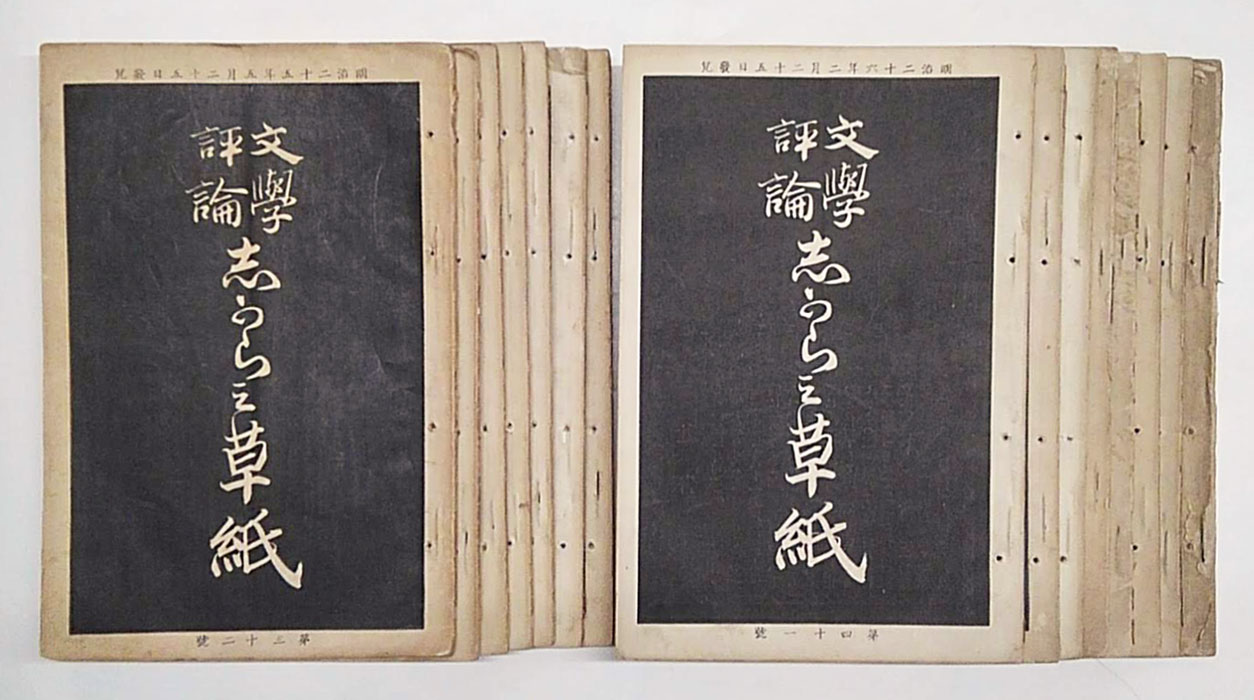 明治二十五年五月二十五日發兌
文學
評論
志からみ草紙
第三十二號
明治二十六年二月二十五日發兌
文學
評論
志からみ草紙
第四十一號